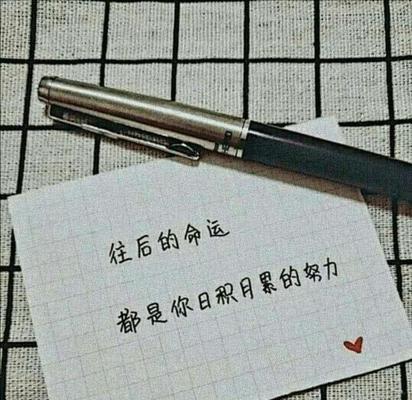 往后的命运
都是你日积月累的努力